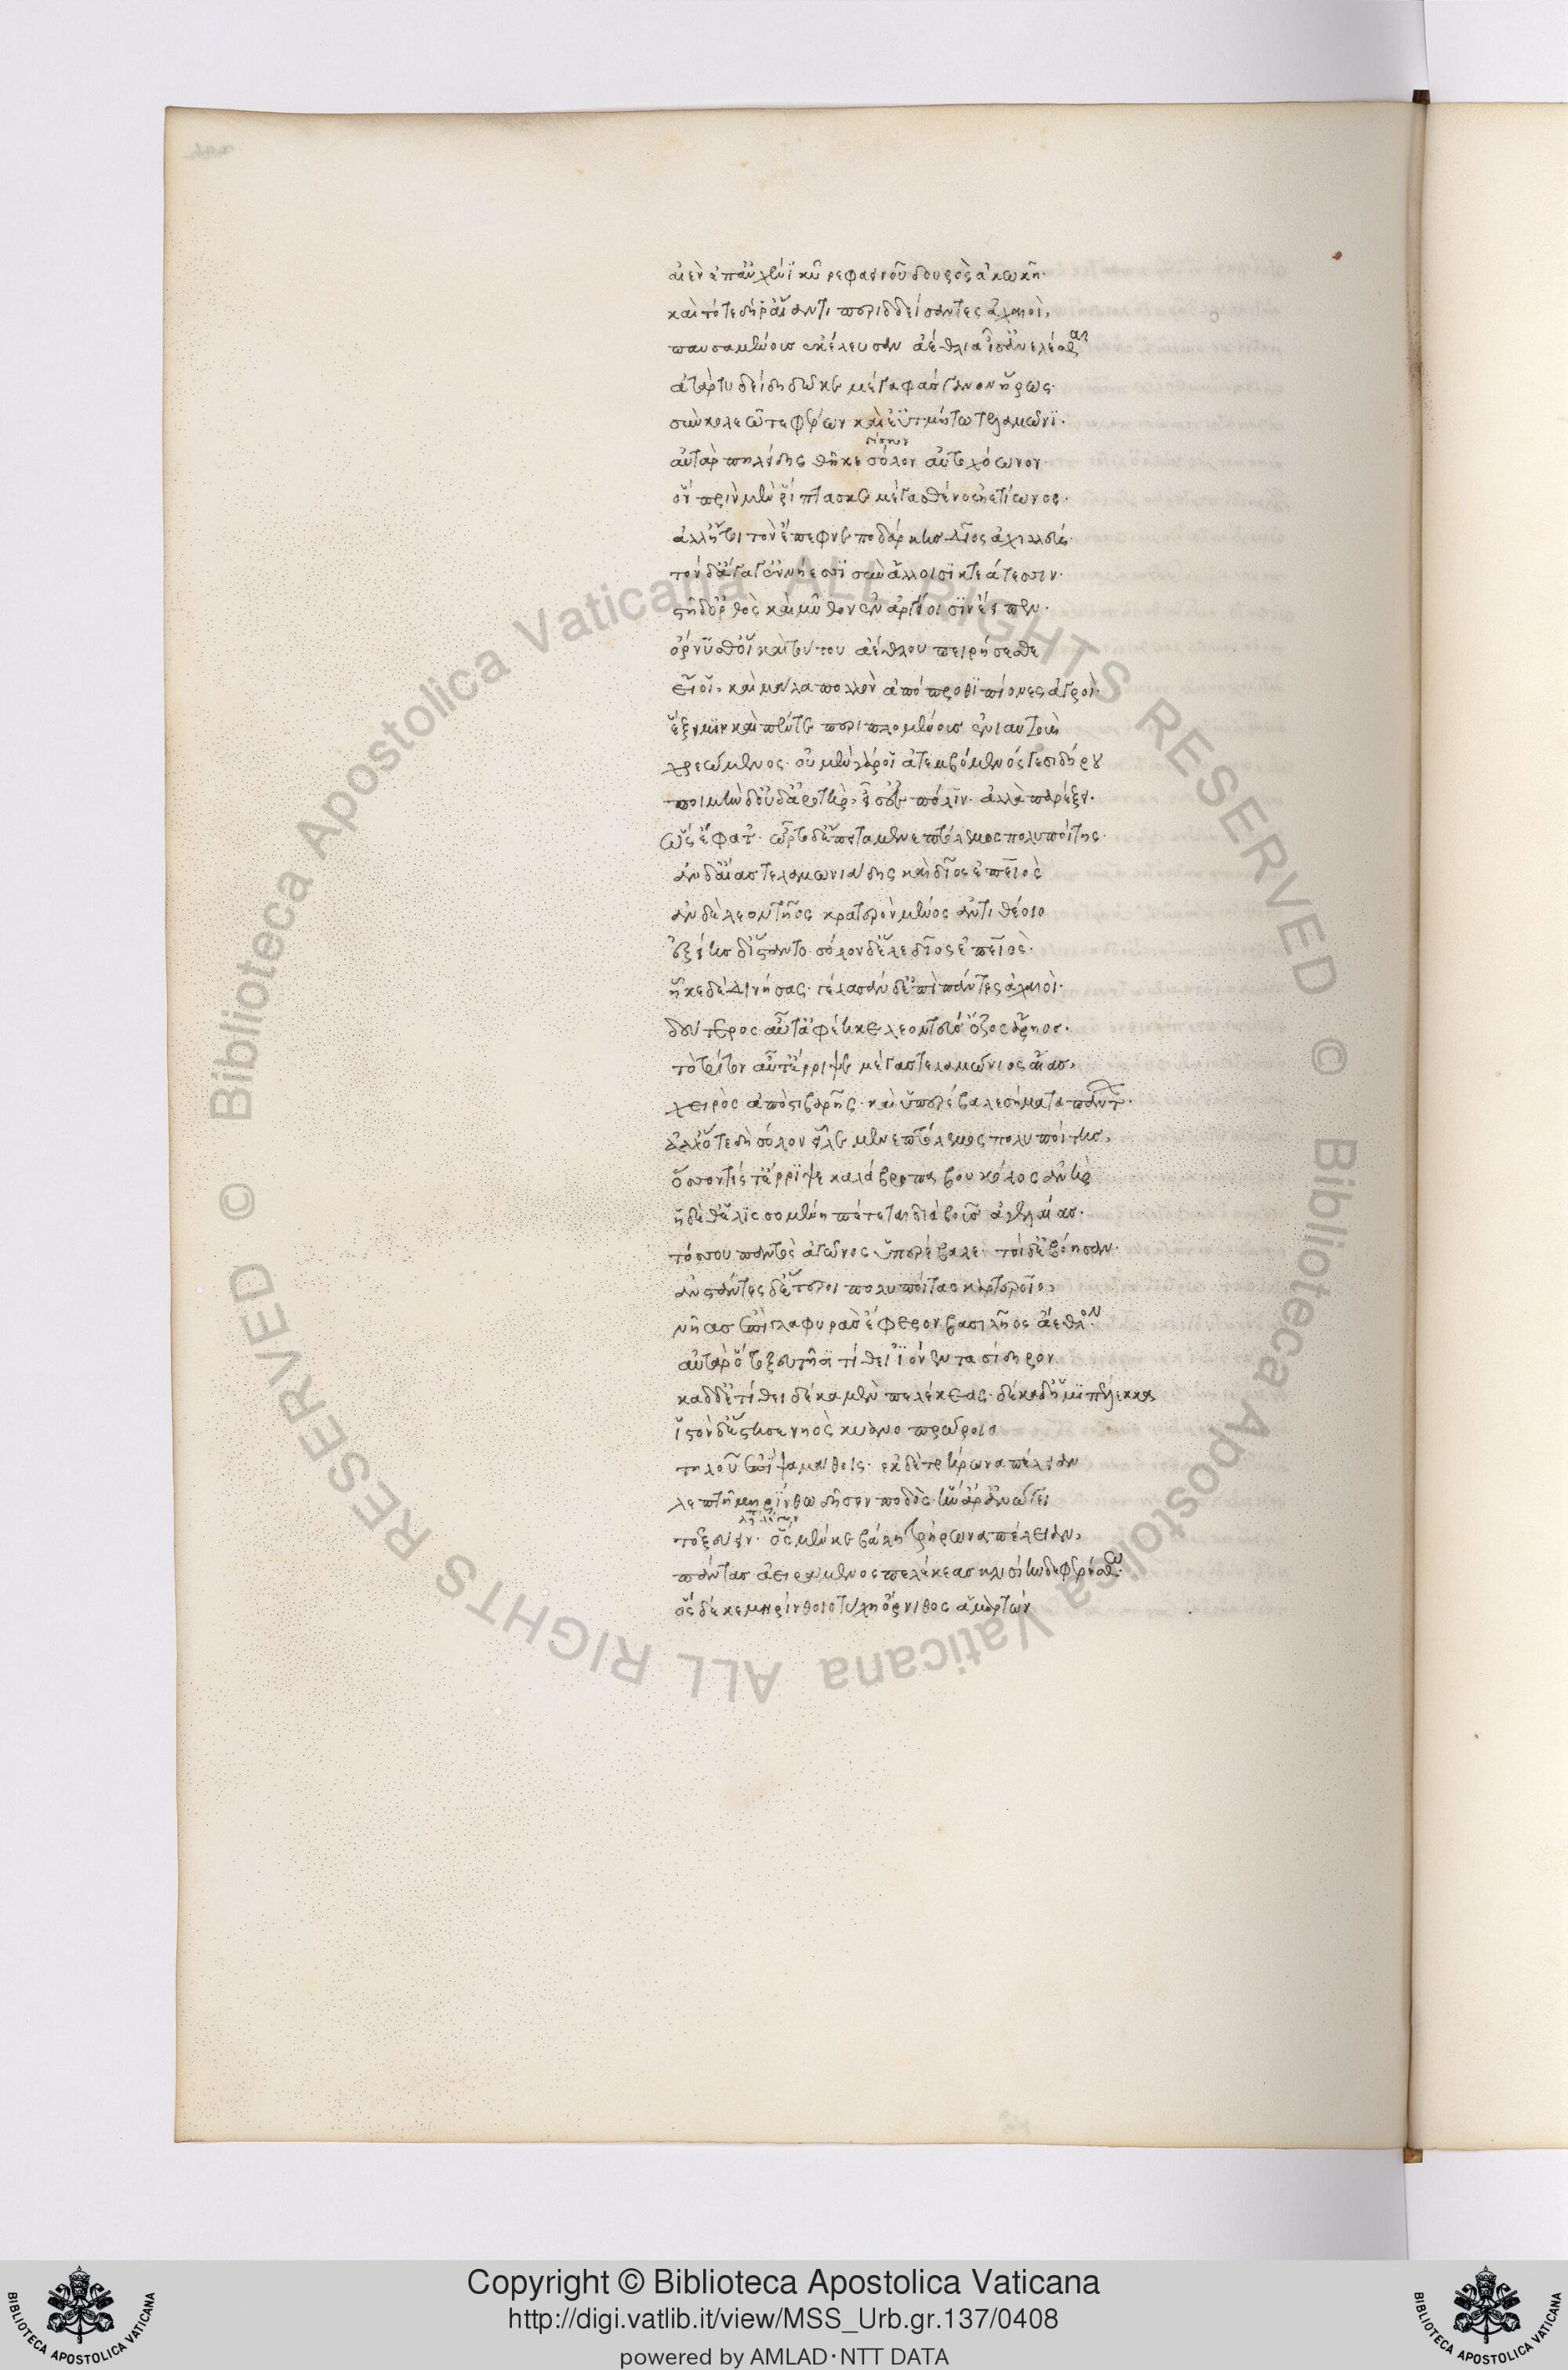 αἰὲν ἐπ' αὐχένϊ κῦρε φαεινοῦ δουρὸς ἀκωκῆ·
καὶ τότε δή ῥ' αἴαντι περιδδείσαντες ἀχαιοὶ,
παυσαμένους ἐκέλευσαν ἀέθλια ἶσ' ἀνελέσθαι
ἀτὰρ τυδείδη δῶκε μέγα φάσγανον ἥρως·
σὺν κολεῶ τε φέρων καὶ ἐϋτμήτω τελαμῶνϊ·
σίδηρον
αὐτὰρ πηλείδης θῆκε σόλον αὐτοχόωνον·
ὃν πρὶν μὲν ῥίπτασκε μέγα σθένος ἠετίωνος·
ἀλλ' ἤτοι τὸν ἔπεφνε ποδάρκης δῖος ἀχιλλεύς·
τὸν δ' ἄγατ' ἐν νήεσσϊ σὺν ἄλλοισϊ κτεάτεσσιν·
στῆ δ' ὀρθὸς καὶ μῦθον ἐν ἀργείοισϊν ἔειπεν·
ὄρνυσθ' οἳ καὶ τούτου ἀέθλου πειρήσεσθε
εἴ οἱ, καὶ μάλα πολλὸν ἀπόπροθϊ πίονες ἀγροὶ·
ἕξει μϊν καὶ πέντε περιπλομένους ἐνιαυτοὺς
χρεώμενος· οὐ μὲν γάρ οἱ ἀτεμβόμενός γε σιδήρου
ποιμὴν δ' οὐδ' ἀροτὴρ, εἶσ' ἐς πόλϊν· ἀλλὰ παρέξει·
ὣς ἔφατ'· ὦρτο δ' ἔπειτα μενεπτόλεμος πολυποίτης·
ἂν δ' αἴας τελαμωνιάδης καὶ δῖος ἐπειὸς
ἂν δὲ λεοντῆος κρατερὸν μένος ἀντιθέοιο
ἑξείης δ' ἵσταντο· σόλον δ' ἕλε δῖος ἐπειὸς·
ἧκε δὲ δινήσας· γέλασαν δ' ἐπὶ πάντες ἀχαιοὶ·
δεύτερος αὖτ' ἀφέηκε λεοντεὺς ὄζος ἄρηος·
τὸ τρίτον αὖτ' ἔρριψε μέγας τελαμώνιος αἴας,
χειρὸς ἀπὸ στιβαρῆς· καὶ ὑπέρβαλε σήματα πάντ'·
ἀλλ' ὅτε δὴ σόλον εἷλε μενεπτόλεμος πολυποίτης,
ὅσσόν τίς τ' ἔρρϊψε καλάβροπα βουκόλος ἀνὴρ
ἣ δέ θ' ἑλϊσσομένη πέτεται διὰ βοῦς ἀγελαίας·
τόσσον παντὸς ἀγῶνος ὑπέρβαλε· τοὶ δ' ἐβόησαν·
ἀνστάντες δ' ἕταροι πολυποίταο κρατεροῖο,
νῆας ἐπὶ γλαφυρὰς ἔφερον βασιλῆος ἄεθλον·
αὐτὰρ ὃ τοξευτῆσϊ τίθει ἰόεντα σίδηρον
καδδ' ἐτίθει δέκα μὲν πελέκεας· δέκα δ' ἡμϊπέλεκκα
ἱστὸν δ' ἔστησε νηὸς κυανοπρώροιο
τηλοῦ ἐπὶ ψαμάθοις· ἐκ δὲ τρήρωνα πέλειαν
λεπτῆ μηρίνθω δῆσεν ποδὸς· ἧς ἄρ' ἀνώγει
τοξεύειν· ὃς μέν κε βάλη τρήρωνα πέλειαν,
πάντας ἀειράμενος πελέκεας κλισίηνδε φερέσθω·
ὃς δέ κε μηρίνθοιο τύχη ὄρνιθος ἁμαρτών
© Biblioteca Apostolica Vaticana ALL RIGHTS RESERVED © Biblioteca Apostolica Vaticana ALL RIGHTS RESERVED
Copyright © Biblioteca Apostolica Vaticana
http://digi.vatlib.it/view/MSS_Urb.gr.137/0408
powered by AMLAD·NTT DATA
BIBLIOTECA APOSTOLICA VATICANA
BIBLIOTECA APOSTOLICA VATICANA